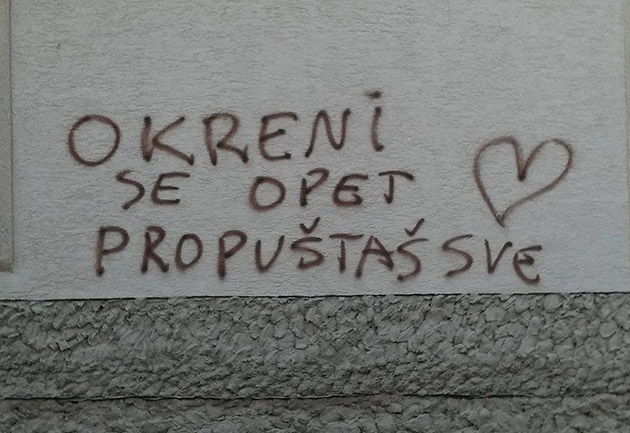 OKRENi
SE OPET
PROPUŠTAŠ SVE